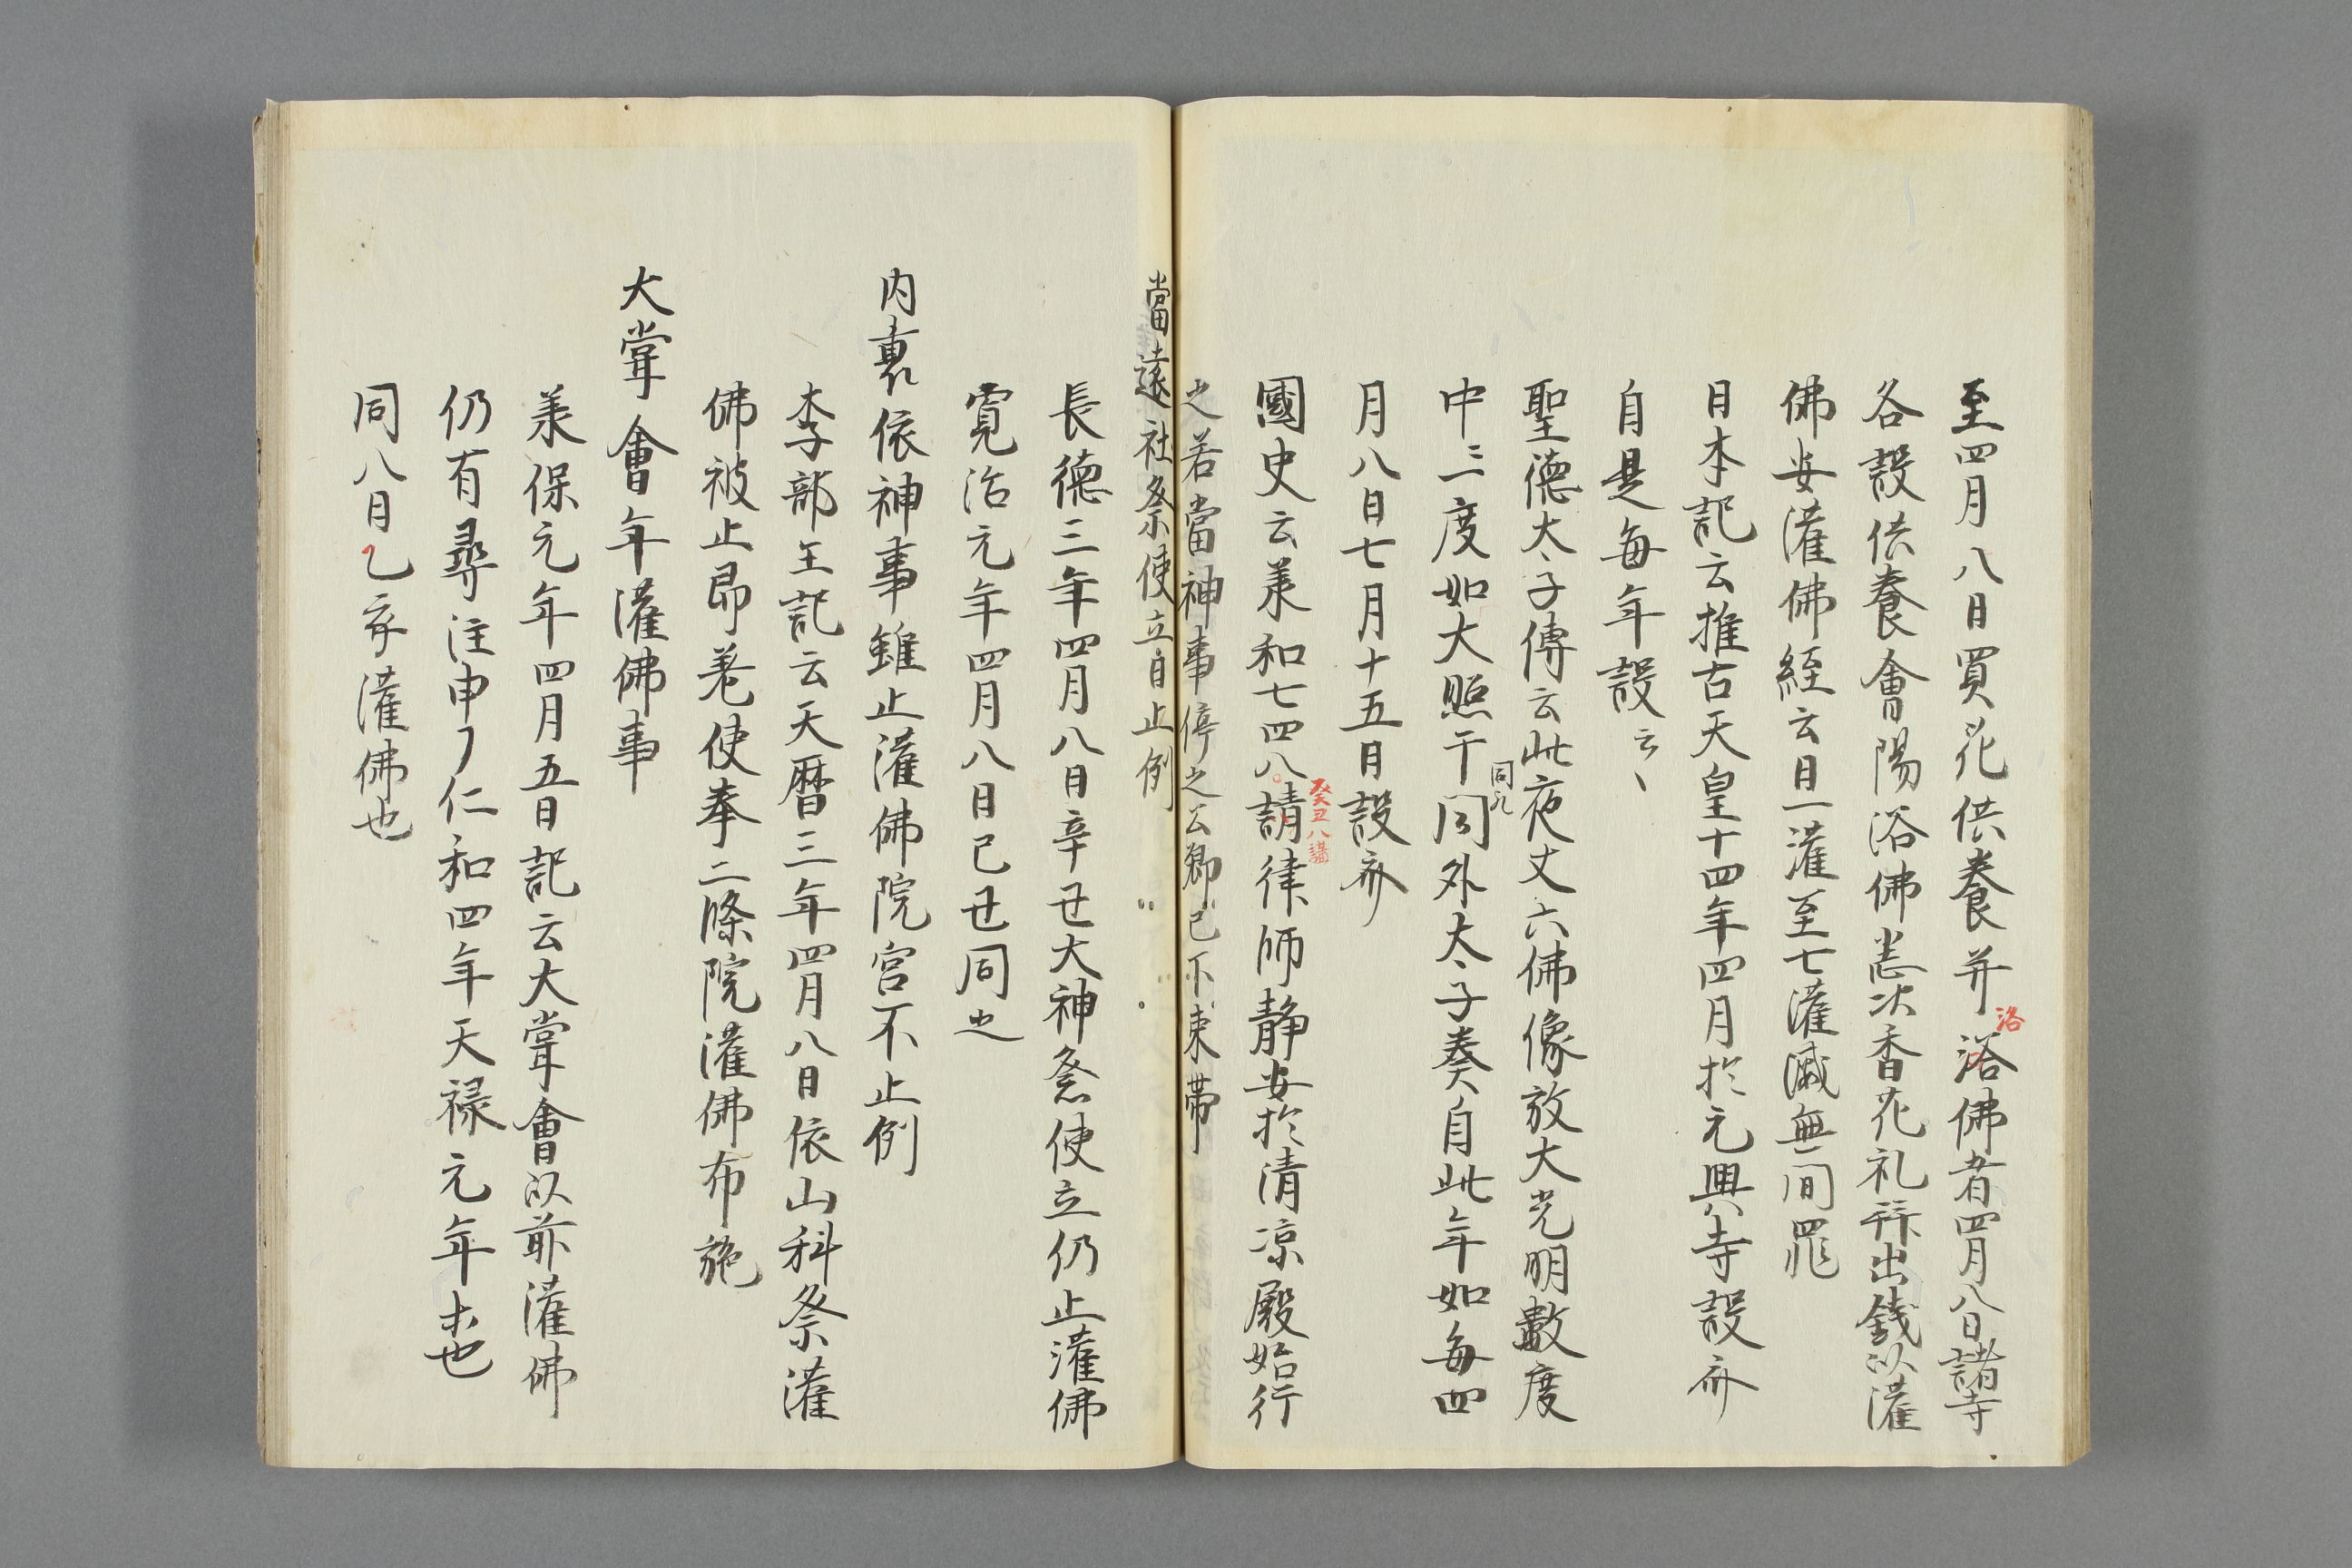 至四月八日買花供養并浴佛者四月八日諸寺
洛
各設供養會陽浴佛恙次香花礼拜出錢以灌
佛安灌佛経云日一灌至七灌滅無間罪
日本記云推古天皇十四年四月於元興寺設斎
自是每年設云〻
聖德太子傳云此夜丈六佛像放大光明數度
中三度如大照干同外太子奏自此年如每四
同凡
月八日七月十五日設斎
國史云羕和七四八請律師静安於清凉殿始行
癸丑八講
之若當神事停之公卿已下束帶
當遠社祭使立自止例
長德三年四月八日辛丑大神祭使立仍止灌佛
寛治元年四月八日己丑同之
内裏依神事雖止灌佛院宮不止例
李部王記云天暦三年四月八日依山科祭灌
佛被止即差使奉二條院灌佛布施
大甞會年灌佛事
羕保元年四月五日記云大甞會以前灌佛
仍有尋注申了仁和四年天禄元年ホ也
同八月乙亥灌佛也